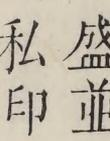 盛並
私印